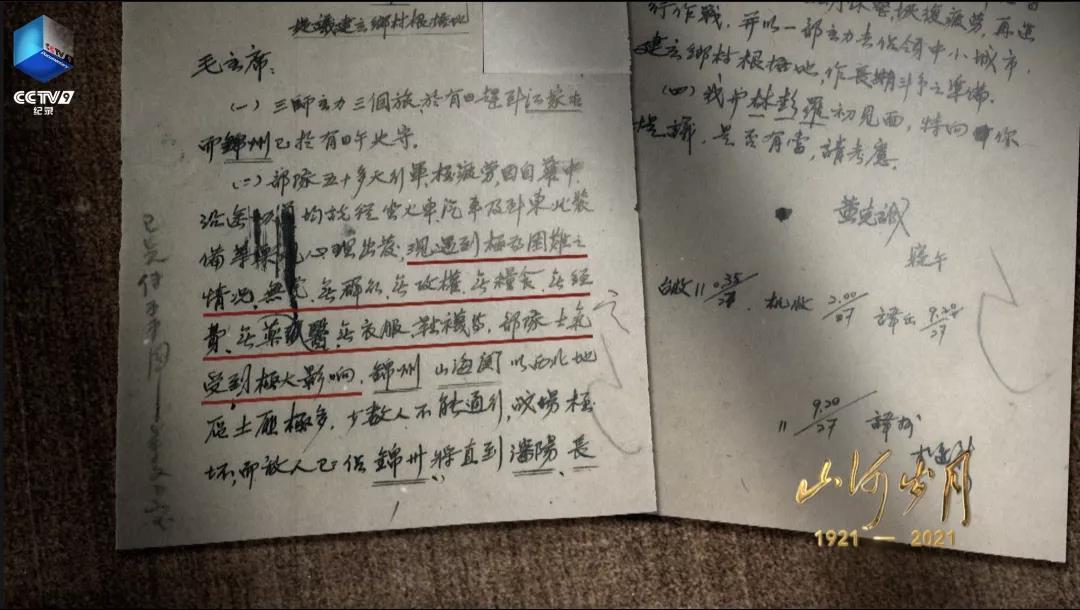 CCTV9
纪录
提議建立鄉村根据地
毛主席：
（一）三師主力三個旅，於有日趕到江家屯
而錦州已於有日午失守。
（二）部隊五十多天行軍，極疲勞，因自華中
沿途 均 坐火車汽車及到東北裝
備等 心理出發，現遇到極為困難之
情况，無党、無群众、無政權、無糧食、無經
費、無藥 醫、無衣服、鞋襪等，部隊士氣
受到極大影响，錦州、山海関以西北地
區土匪極多，少数人不能通行，战場極
坏，而敌人已佔錦州，將直到瀋陽、長
1
行作戰，并以一部主力去佔領中小城市，
建立鄉村根据地，作長期斗争之準備。
（四）我与林彭羅初見面，特向你
提議，是否有當，請考慮。
黄克诚
台收11 0.35/27 机收 2.00/27 譯出 9.20/27
11 9.20/27 譯
山河岁月
1921 — 2021